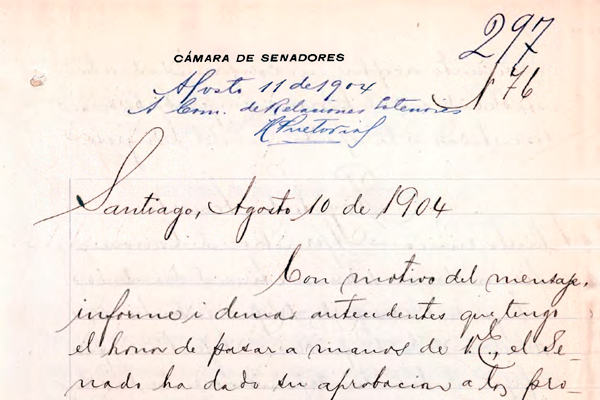 297
N 76
CÁMARA DE SENADORES
Agosto 11 de 1904
A Com. de Relaciones Esteriores
Santiago, Agosto 10 de 1904
Con motivo del mensaje,
informe i demas antecedentes que tengo
el honor de pasar a manos de V.E., el Se-
nado ha dado su aprobacion a los pro-